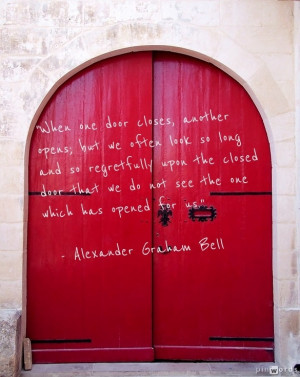 "When one door closes, another
opens; but we often look so long
and so regretfully upon the closed
door that we do not see the one
which has opened for us."
- Alexander Graham Bell
pinwords